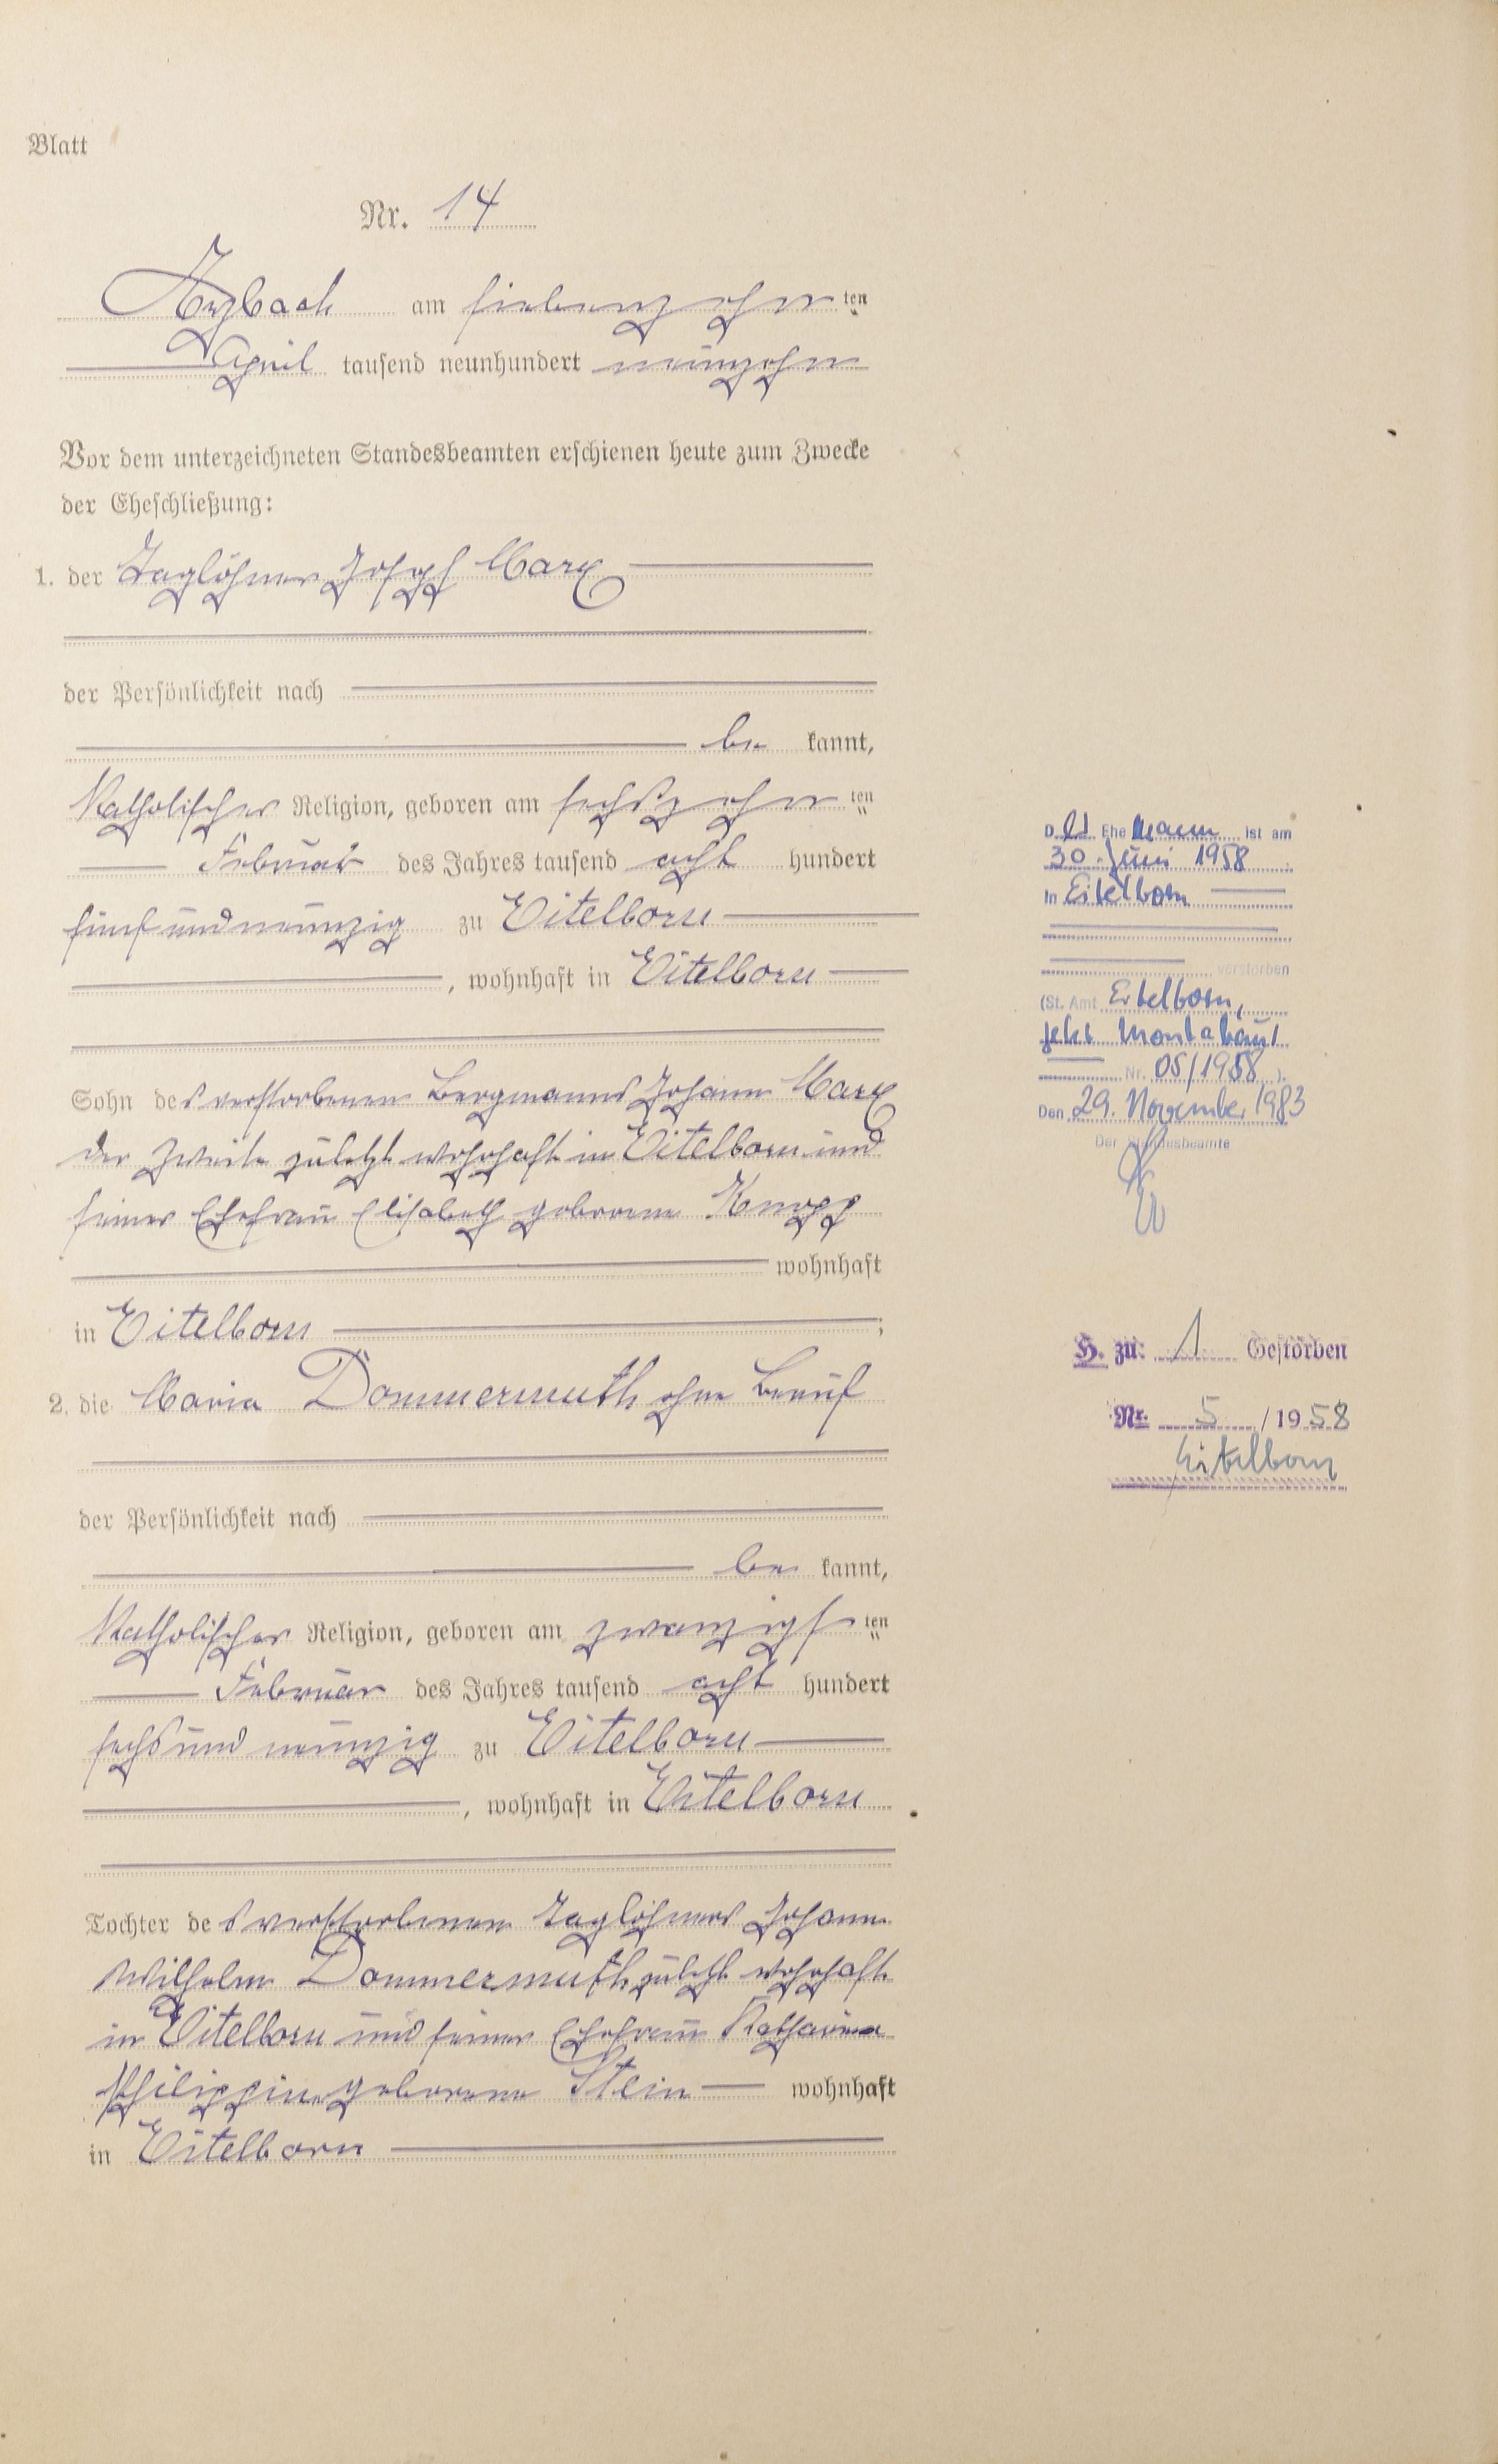 Blatt
Nr. 14
Arzbach am siebenzehn ten
April tausend neunhundert neunzehn
Vor dem unterzeichneten Standesbeamten erschienen heute zum Zwecke
der Eheschließung:
1. der Taglöhner Joseph Marx
der Persönlichkeit nach
be kannt,
Katholischer Religion, geboren am sechszehn ten
Februar des Jahres tausend acht hundert
fünf und neunzig zu Eitelborn
, wohnhaft in Eitelborn
Sohn des verstorbenen Bergmanns Johann Marx
der Zweite zuletzt wohnhaft in Eitelborn und
seiner Ehefrau Elisabeth geborene Knopp
wohnhaft
in Eitelborn ;
2. die Maria Dommermuth ohne Beruf
der Persönlichkeit nach
be kannt,
Katholischer Religion, geboren am zwanzigs ten
Februar des Jahres tausend acht hundert
sechs und neunzig zu Eitelborn
, wohnhaft in Eitelborn
Tochter des verstorbenen Taglöhners Johann
Wilhelm Dommermuth zuletzt wohnhaft
in Eitelborn und seiner Ehefrau Katharina
Philippine geborene Stein wohnhaft
in Eitelborn
D er Ehe mann ist am
30. Juni 1958
in Eitelborn
verstorben
(St. Amt Eitelborn,
jetzt Montabaur
Nr. 05/1958 ).
Den 29. November 1983
Der Standesbeamte
H. zu: 1 Gestorben
Nr. 5 / 19 58
Eitelborn